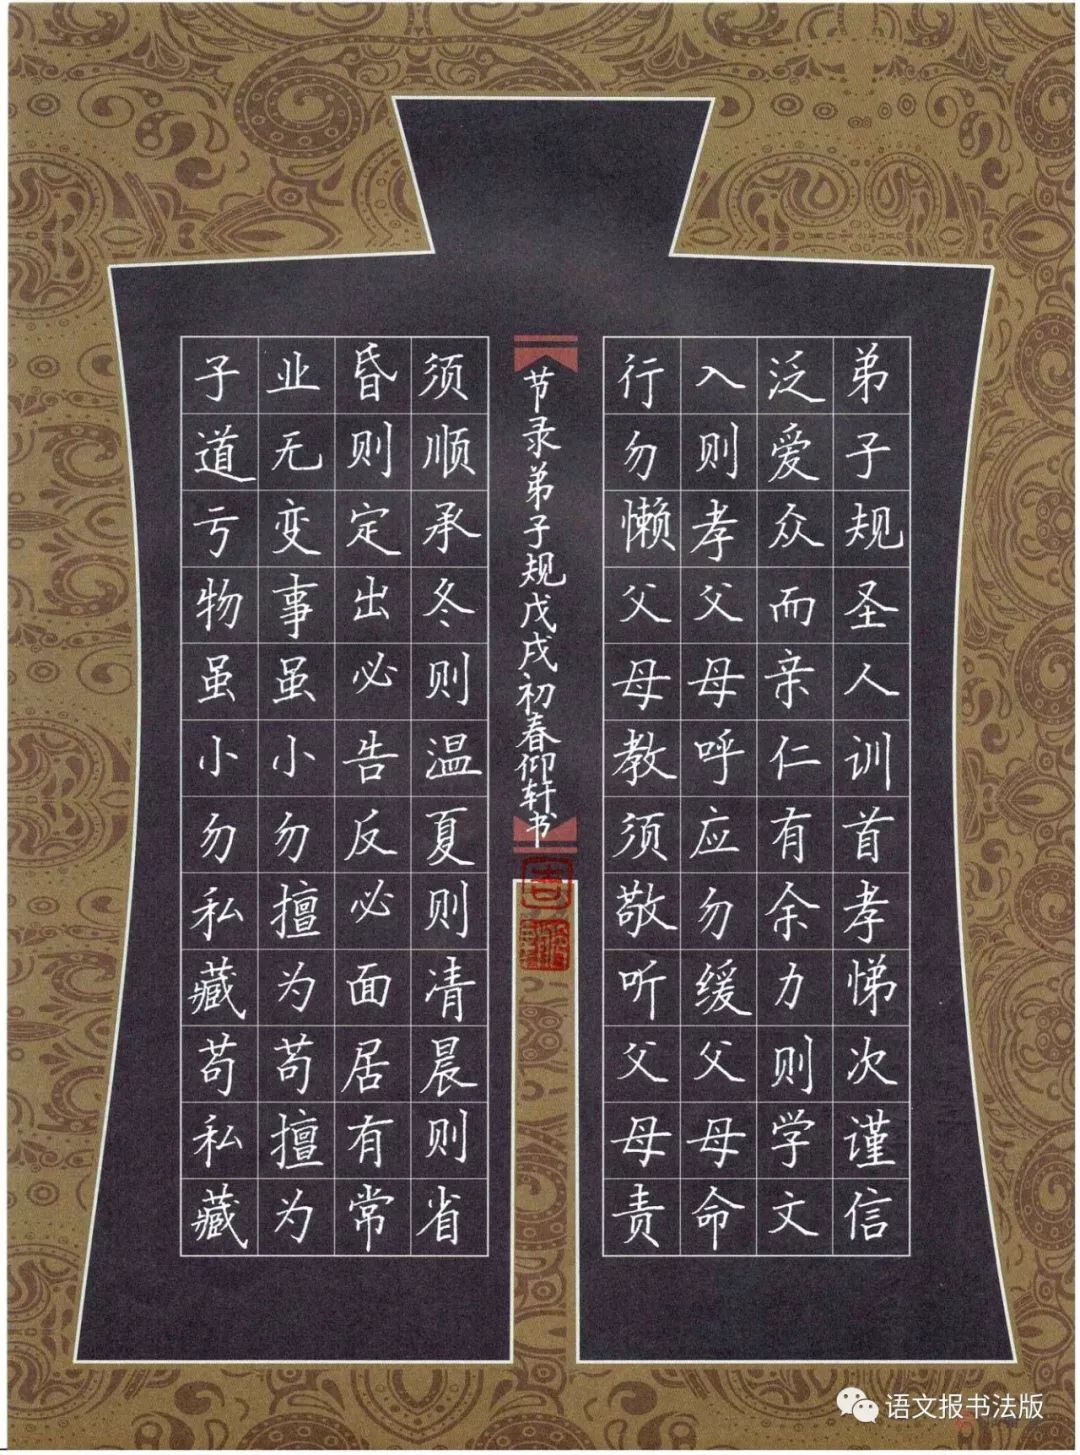 弟子规圣人训首孝悌次谨信
泛爱众而亲仁有余力则学文
入则孝父母呼应勿缓父母命
行勿懒父母教须敬听父母责
须顺承冬则温夏则凊晨则省
昏则定出必告反必面居有常
业无变事虽小勿擅为苟擅为
子道亏物虽小勿私藏苟私藏
节录弟子规戊戌初春仰轩书
语文报书法版